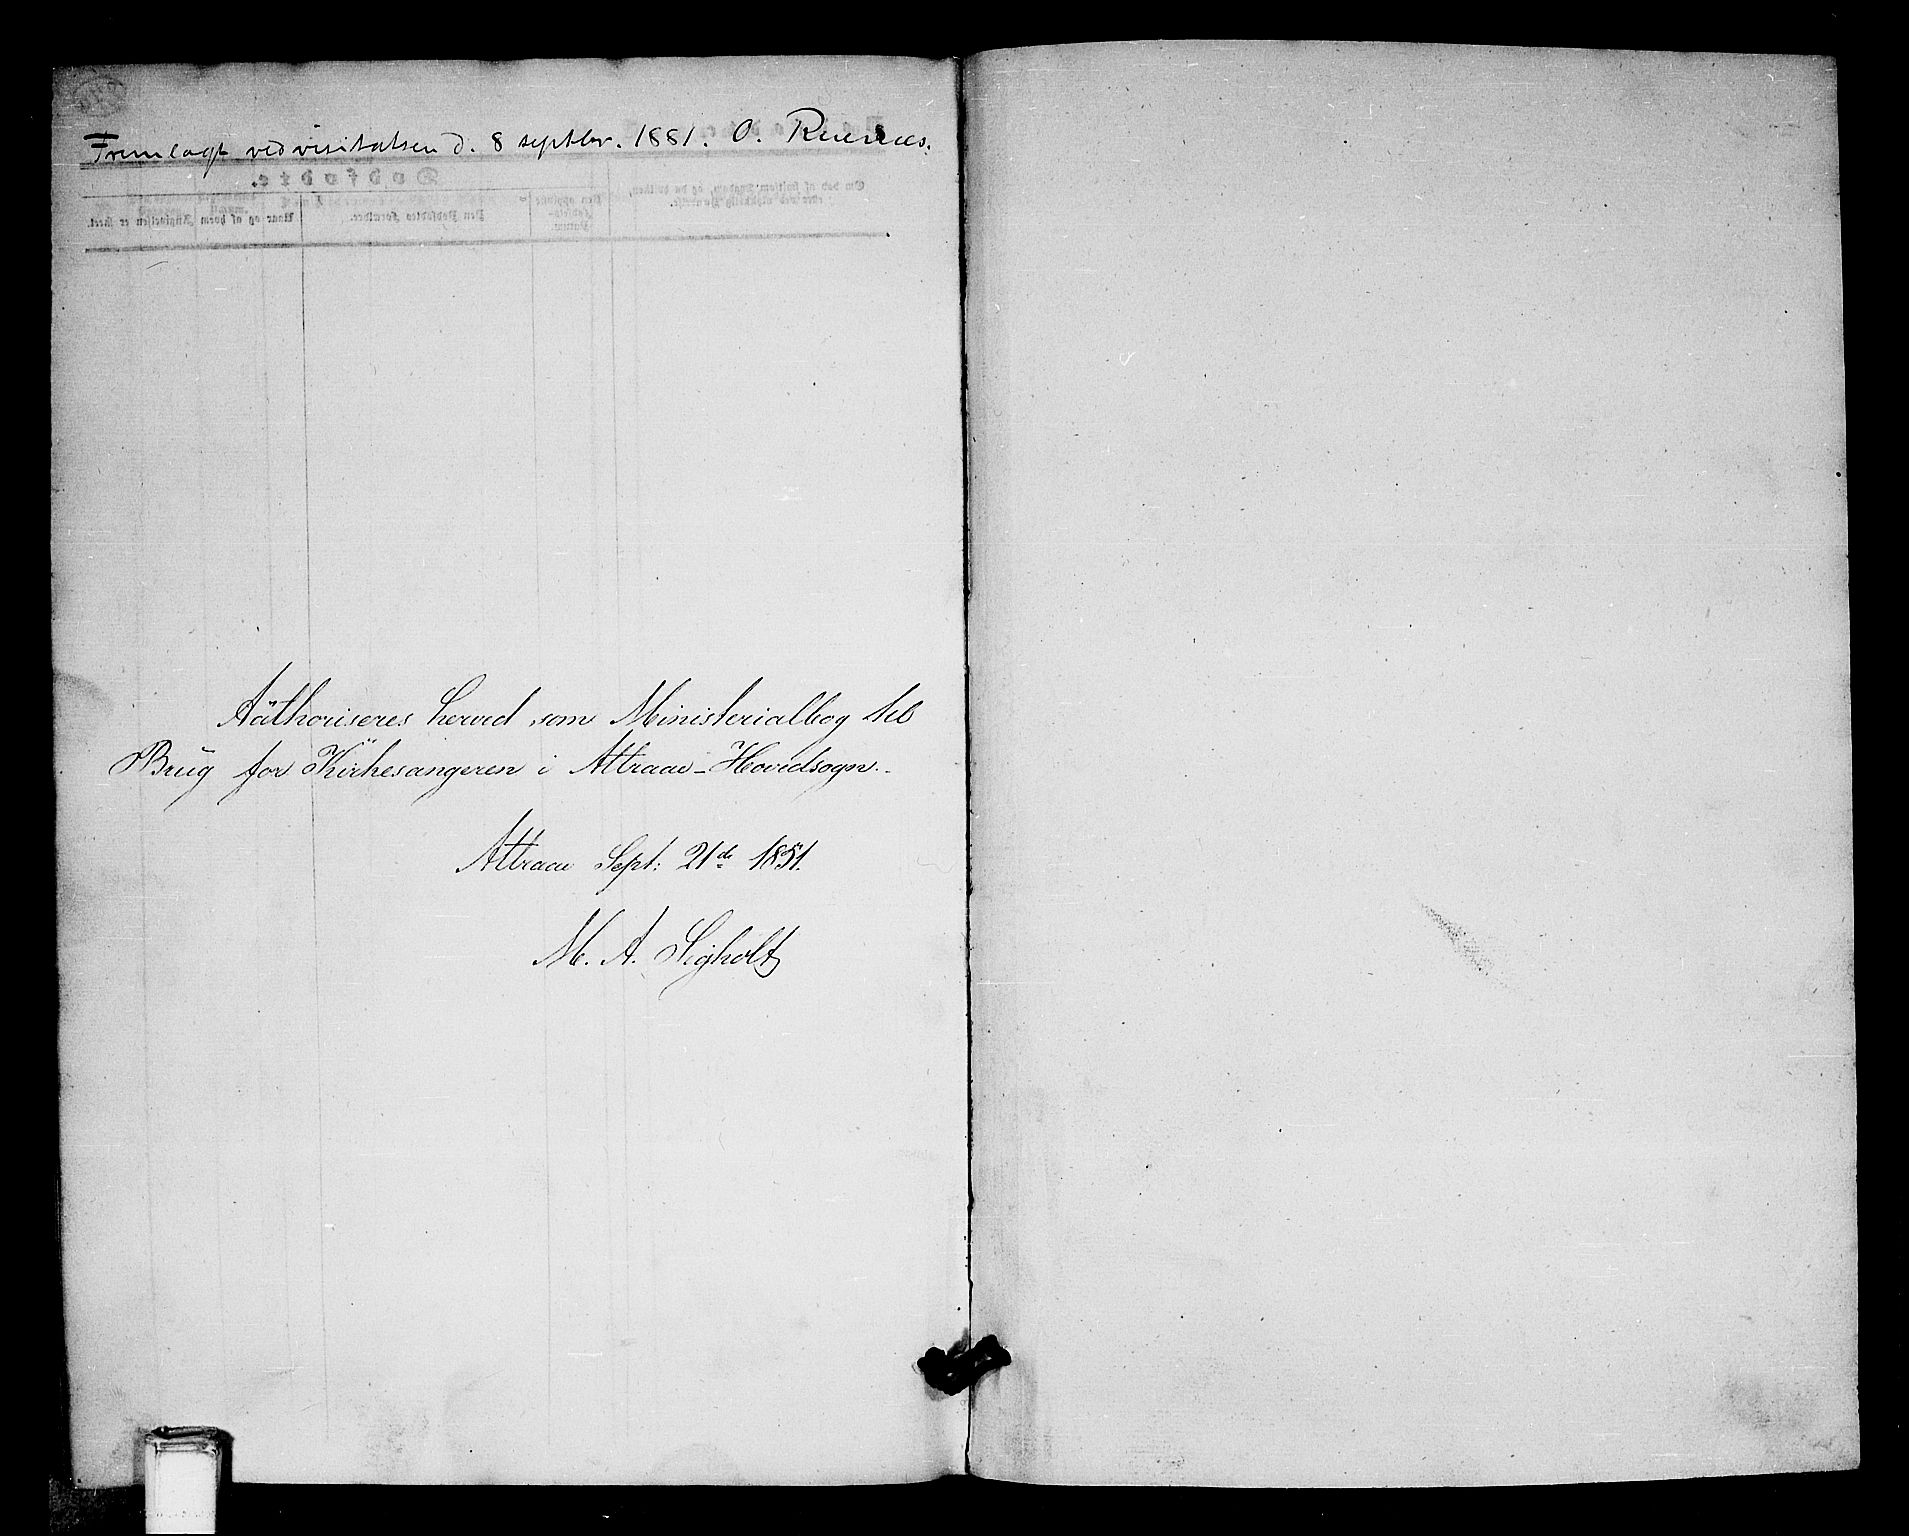 Fremlagt ved visitatsen d. 8 septbr. 1881. O.
Aüthoriseres herved som Ministerialbog til
Brüg for Kirkesangeren i Attraae-Hovedsogn.
Attraae Sept: 21de 1851.
M. A. Sigholt